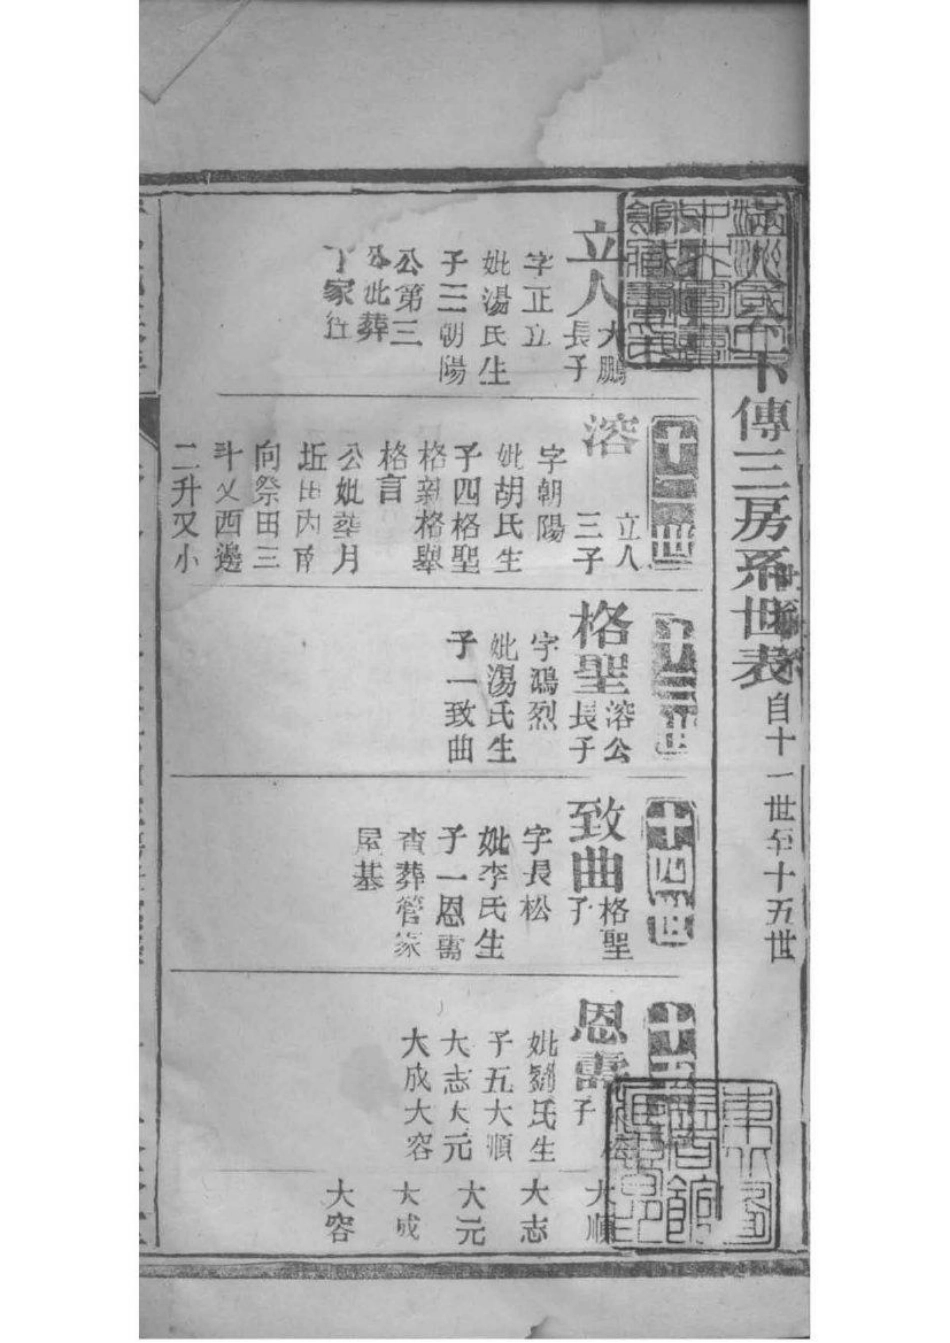 下傳三房系世表 自十一世至十五世
立人 大鵬
長子
字正立
妣湯氏生
子三朝陽
公第三
公妣葬
丁家
十二世
溶 立人
三子
字朝陽
妣胡氏生
子四格聖
格新格舉
格言
公妣葬月
坵田丙
向祭田三
斗又西邊
二升又小
十三世
格聖 溶公
長子
字鴻烈
妣湯氏生
子一致曲
十四世
致曲 格聖
子
字長松
妣李氏生
子一恩壽
葬管家
屋基
十五
恩壽
子
妣劉氏生
子五大順
大志大元
大成大容
大順
大志
大元
大成
大容